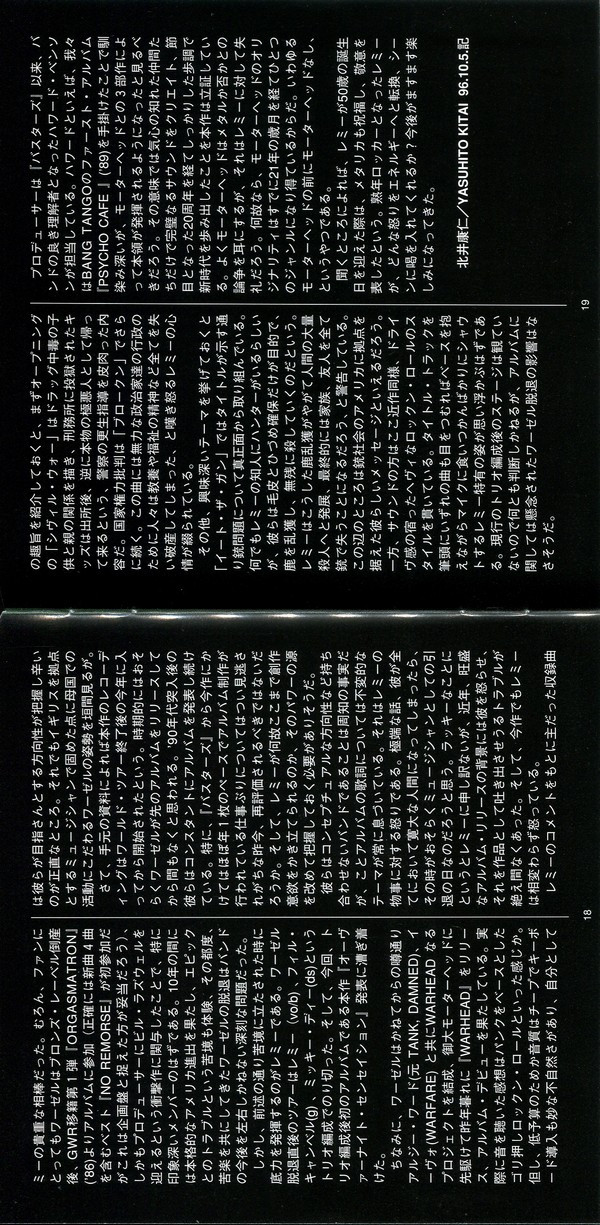 ミーの貴重な相棒だった。むろん、ファンに
とってもワーゼルはブロンズ・レーベル倒産
後、GWR移籍第1弾『ORGASMATRON』
('86)よりアルバムに参加（正確には新曲4曲
を含むベスト『NO REMORSE』が初参加だ
がこれは企画盤と捉えた方が妥当だろう)、
しかもプロデューサーにビル・ラズウェルを
迎えるという衝撃作に関与したことで、特に
印象深いメンバーのはずである。10年の間に
は本格的なアメリカ進出を果たし、エピック
とのトラブルという苦境も体験、その都度、
苦楽を共にしてきたワーゼルの脱退はバンド
の今後を左右しかねない深刻な問題だった。
しかし、前述の通り苦境に立たされた時に
底力を発揮するのがレミーである。ワーゼル
脱退直後のツアーはレミー（vo/b)、フィル・
キャンベル(g)、ミッキー・ディー(ds)という
トリオ編成でのり切った。そして、今回、ト
リオ編成後初のアルバムである本作『オーヴ
ァーナイト・センセイション』発表に漕ぎ着
けた。
ちなみに、ワーゼルはかねてからの噂通り
アルジー・ワード(元 TANK, DAMNED)、イ
ーヴォ(WARFARE) と共にWARHEAD なる
プロジェクトを結成、御大モーターヘッドに
先駆けて昨年暮れに『WARHEAD』をリリー
ス、アルバム・デビューを果たしている。実
際に音を聴いた感想はパンクをベースとした
ゴリ押しロックン・ロールといった感じか。
但し、低予算のためか音質はチープでキーボ
ード導入も妙な不自然さがあり、自分として
18
は彼らが目指さんとする方向性が把握し辛い
のが正直なところ。それでもイギリスを拠点
とするミュージシャンで固めた点に母国での
活動にこだわるワーゼルの姿勢を垣間見るが。
さて、手元の資料によれば本作のレコーデ
ィングはワールド・ツアー終了後の今年に入
ってから開始されたという。時期的にはおそ
らくワーゼルが先のアルバムをリリースして
から間もなくと思われる。'90年代突入後の
彼らはコンスタントにアルバムを発表し続け
ている。特に『バスターズ』から今作にか
けてはほぼ年1枚のペースでアルバム制作が
行われている仕事ぶりについてはつい見逃さ
れがちな昨今、再評価されるべきではないだ
ろうか。そして、レミーが何故ここまで創作
意欲をかき立てられるのか、そのパワーの源
を改めて把握しておく必要がありそうだ。
彼らはコンセプチュアルな方向性など持ち
合わせないバンドであることは周知の事実だ
が、ことアルバムの歌詞については不変的な
テーマが常に息づいている。それはレミーの
物事に対する怒りである。極端な話、彼が全
てにおいて寛大な人間になってしまったら、
その時がおそらくミュージシャンとしての引
退の日なのだろうと思う。ラッキーなことに
というとレミーに申し訳ないが、近年、旺盛
なアルバム・リリースの背景には彼を怒らせ、
それを作品として吐き出させうるトラブルが
絶え間なくあった。そして、今作でもレミー
は相変わらず怒っている。
レミーのコメントをもとに主だった収録曲
の趣旨を紹介しておくと、まずオープニング
の「シヴィル・ウォー」はドラッグ中毒の子
供と親の関係を描き、刑務所に投獄されたキ
ッズは出所後、逆に本物の極悪人として帰っ
て来るという、警察の更生指導を皮肉った内
容だ。国家権力批判は「ブロークン」でさら
に続く。この曲には無力な政治家達の行政の
ために人々は教養や福祉の精神など全てを失
い破産してしまった、と嘆き怒るレミーの心
情が綴られている。
その他、興味深いテーマを挙げておくと
「イート・ザ・ガン」ではタイトルが示す通
り銃問題について真正面から取り組んでいる。
何でもレミーの知人にハンターがいるらしい
が、彼らは毛皮とひづめ確保だけが目的で、
鹿を乱獲し、無残に殺していくのだという。
レミーはこうした鹿乱獲がやがて人間の大量
殺人へと発展、最終的には家族、友人を全て
銃で失うことになるだろう、と警告している。
この辺のところは銃社会のアメリカに拠点を
据えた彼らしいメッセージといえるだろう。
一方、サウンドの方はここ近作同様、ドライ
ヴ感の宿ったヘヴィなロックン・ロールのス
タイルを貫いている。タイトル・トラックを
筆頭にいずれの曲も目をつむればベースを抱
えながらマイクに食いつかんばかりにシャウ
トするレミー特有の姿が思い浮かぶはずであ
る。現行のトリオ編成後のステージは観てい
ないので何とも判断しかねるが、アルバムに
関しては懸念されたワーゼル脱退の影響はな
さそうだ。
19
プロデューサーは『バスターズ』以来、バ
ンドの良き理解者となったハワード・ベンソ
ンが担当している。ハワードといえば、我々
はBANG TANGOのファースト・アルバム
『PSYCHO CAFE』('89)を手掛けたことで馴
染み深いが、モーターヘッドとの3部作によ
って本領が発揮されるようになったと見るべ
きだろう。その意味では気心の知れた仲間た
ちだけで完璧なるサウンドをクリエイト、節
目となった20周年を経てしっかりした歩調で
新時代を歩み出したことを本作は立証してい
る。よくモーターヘッドはメタルか否かとの
論争を耳にするが、それはレミーに対して失
礼だろう。何故なら、モーターヘッドのオリ
ジナリティはすでに21年の歳月を経てひとつ
のジャンルになり得ているからだ。いわゆる
モーターヘッドの前にモーターヘッドなし、
というやつである。
聞くところによれば、レミーが50歳の誕生
日を迎えた際は、メタリカも祝福し、敬意を
表したという。熟年ロッカーとなったレミー
が、どんな怒りをエネルギーへと転換、シー
ンに喝を入れてくれるか？今後がますます楽
しみになってきた。
北井康仁／YASUHITO KITAI 96.10.5.記